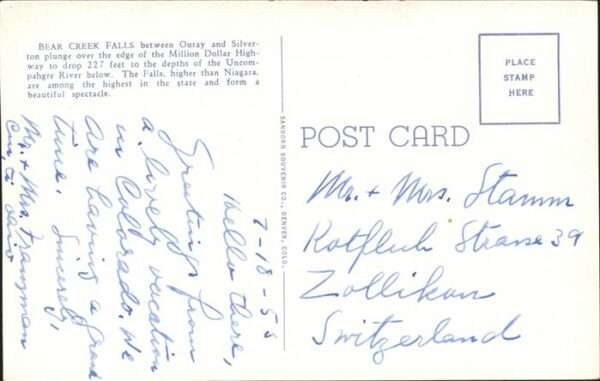 BEAR CREEK FALLS between Ouray and Silver-
ton plunge over the edge of the Million Dollar High-
way to drop 227 feet to the depths of the Uncom-
pahgre River below. The Falls, higher than Niagara,
are among the highest in the state and form a
beautiful spectacle.
7-18-55
Hello there,
Greetings from
a lovely vacation
in Colorado. We
are having a grand
time. Sincerely,
Mr. + Mrs.
Ohio
SANBORN SOUVENIR CO., DENVER, COLO.
POST CARD
PLACE
STAMP
HERE
Mr. + Mrs. Stamm
Rotfluh Strasse 39
Zollikon
Switzerland